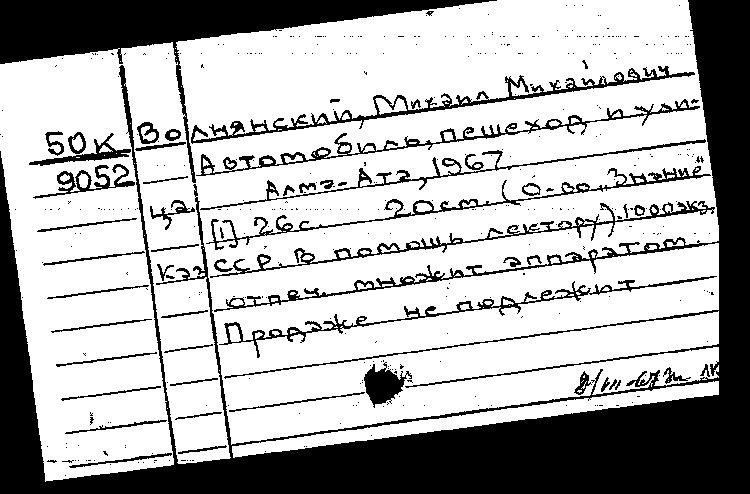 50К Волнянский, Михаил Михайлович
9052 Автомобиль, пешеход и ули-
ца. Алма-Ата, 1967.
[1], 26с. 20см. (О-во „Знание"
Каз ССР. В помощь лектору). 1000экз.
отпеч. множит. аппаратом.
Продаже не подлежит